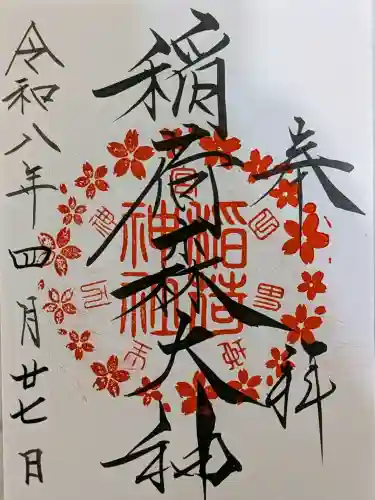 奉拝
稲荷森大神
令和八年四月廿七日
稲荷
神社